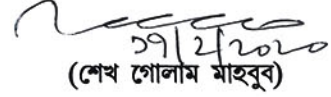 ১৭|২|২০২০
(শেখ গোলাম মাহবুব)